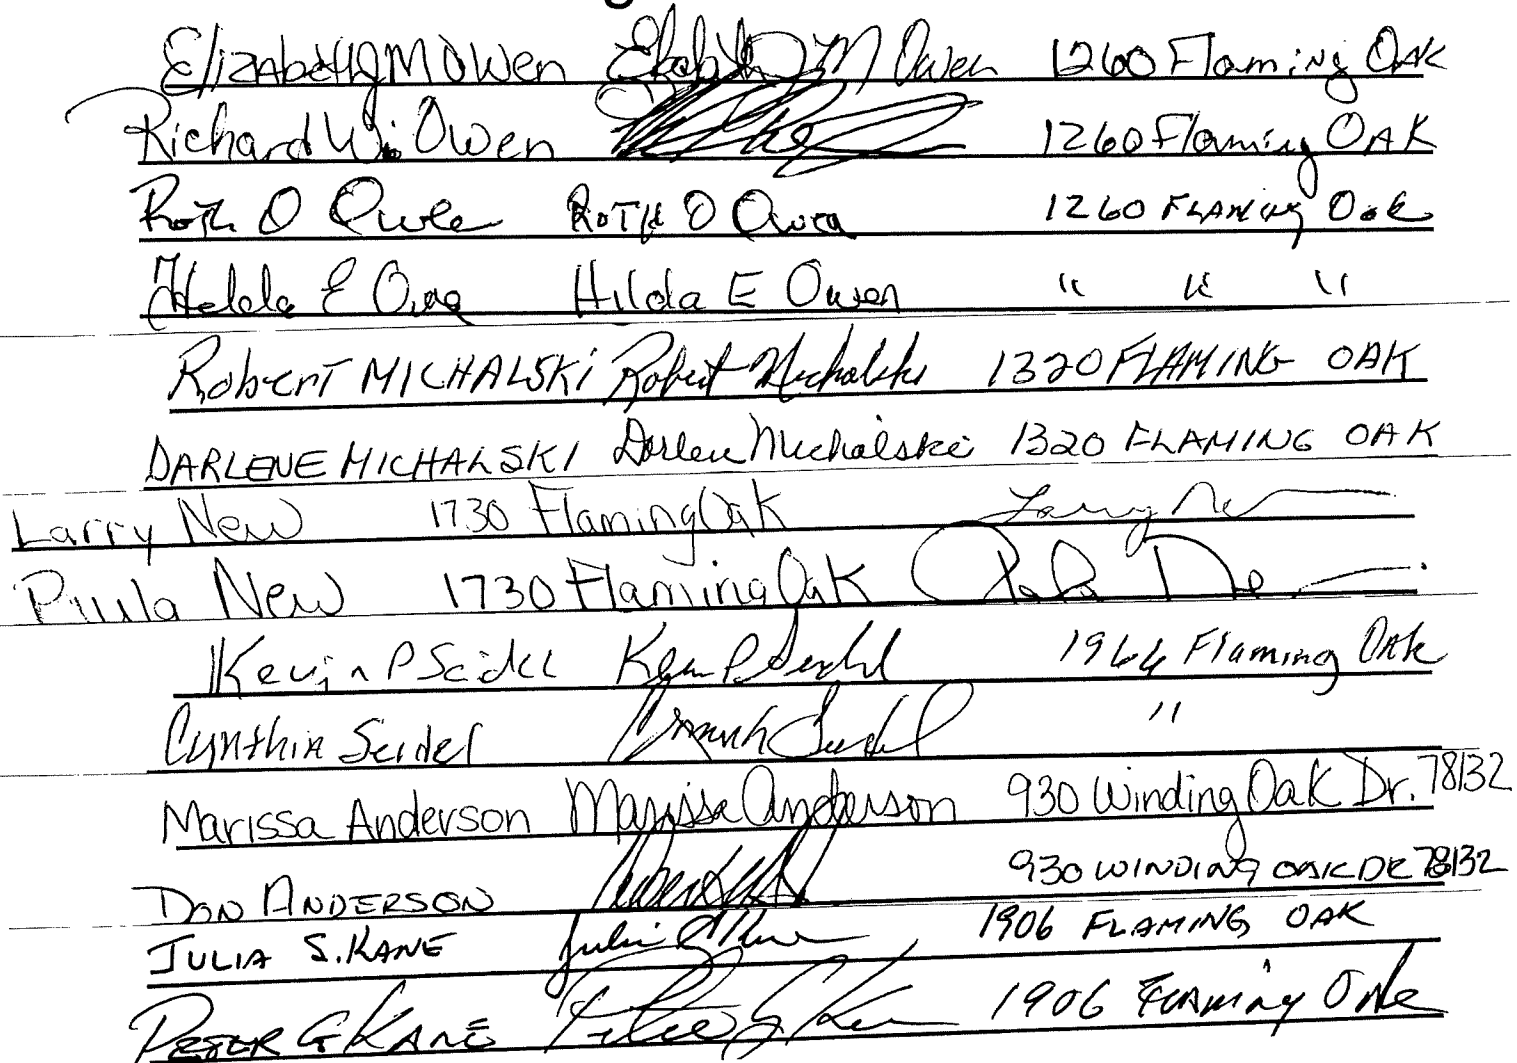 Elizabeth M Owen Elizabeth M Owen 1260 Flaming Oak
Richard W. Owen 1260 Flaming OAK
Roth O Owen ROTH O Owen 1260 FLAMING Oak
Hilda E Owen Hilda E Owen " " "
Robert MICHALSKI Robert Michalski 1320 FLAMING OAK
DARLENE MICHALSKI Darlene Michalski 1320 FLAMING OAK
Larry New 1730 Flaming Oak Larry New
Paula New 1730 Flaming Oak Paula New
Kevin P Seidel Kevin P Seidel 1964 Flaming Oak
Cynthia Seidel Seidel "
Marissa Anderson Marissa Anderson 930 Winding Oak Dr. 78132
DON ANDERSON 930 WINDING OAK DR 78132
JULIA S. KANE Julia S Kane 1906 FLAMING OAK
PETER G KANE Peter G Kane 1906 FLAMING OAK